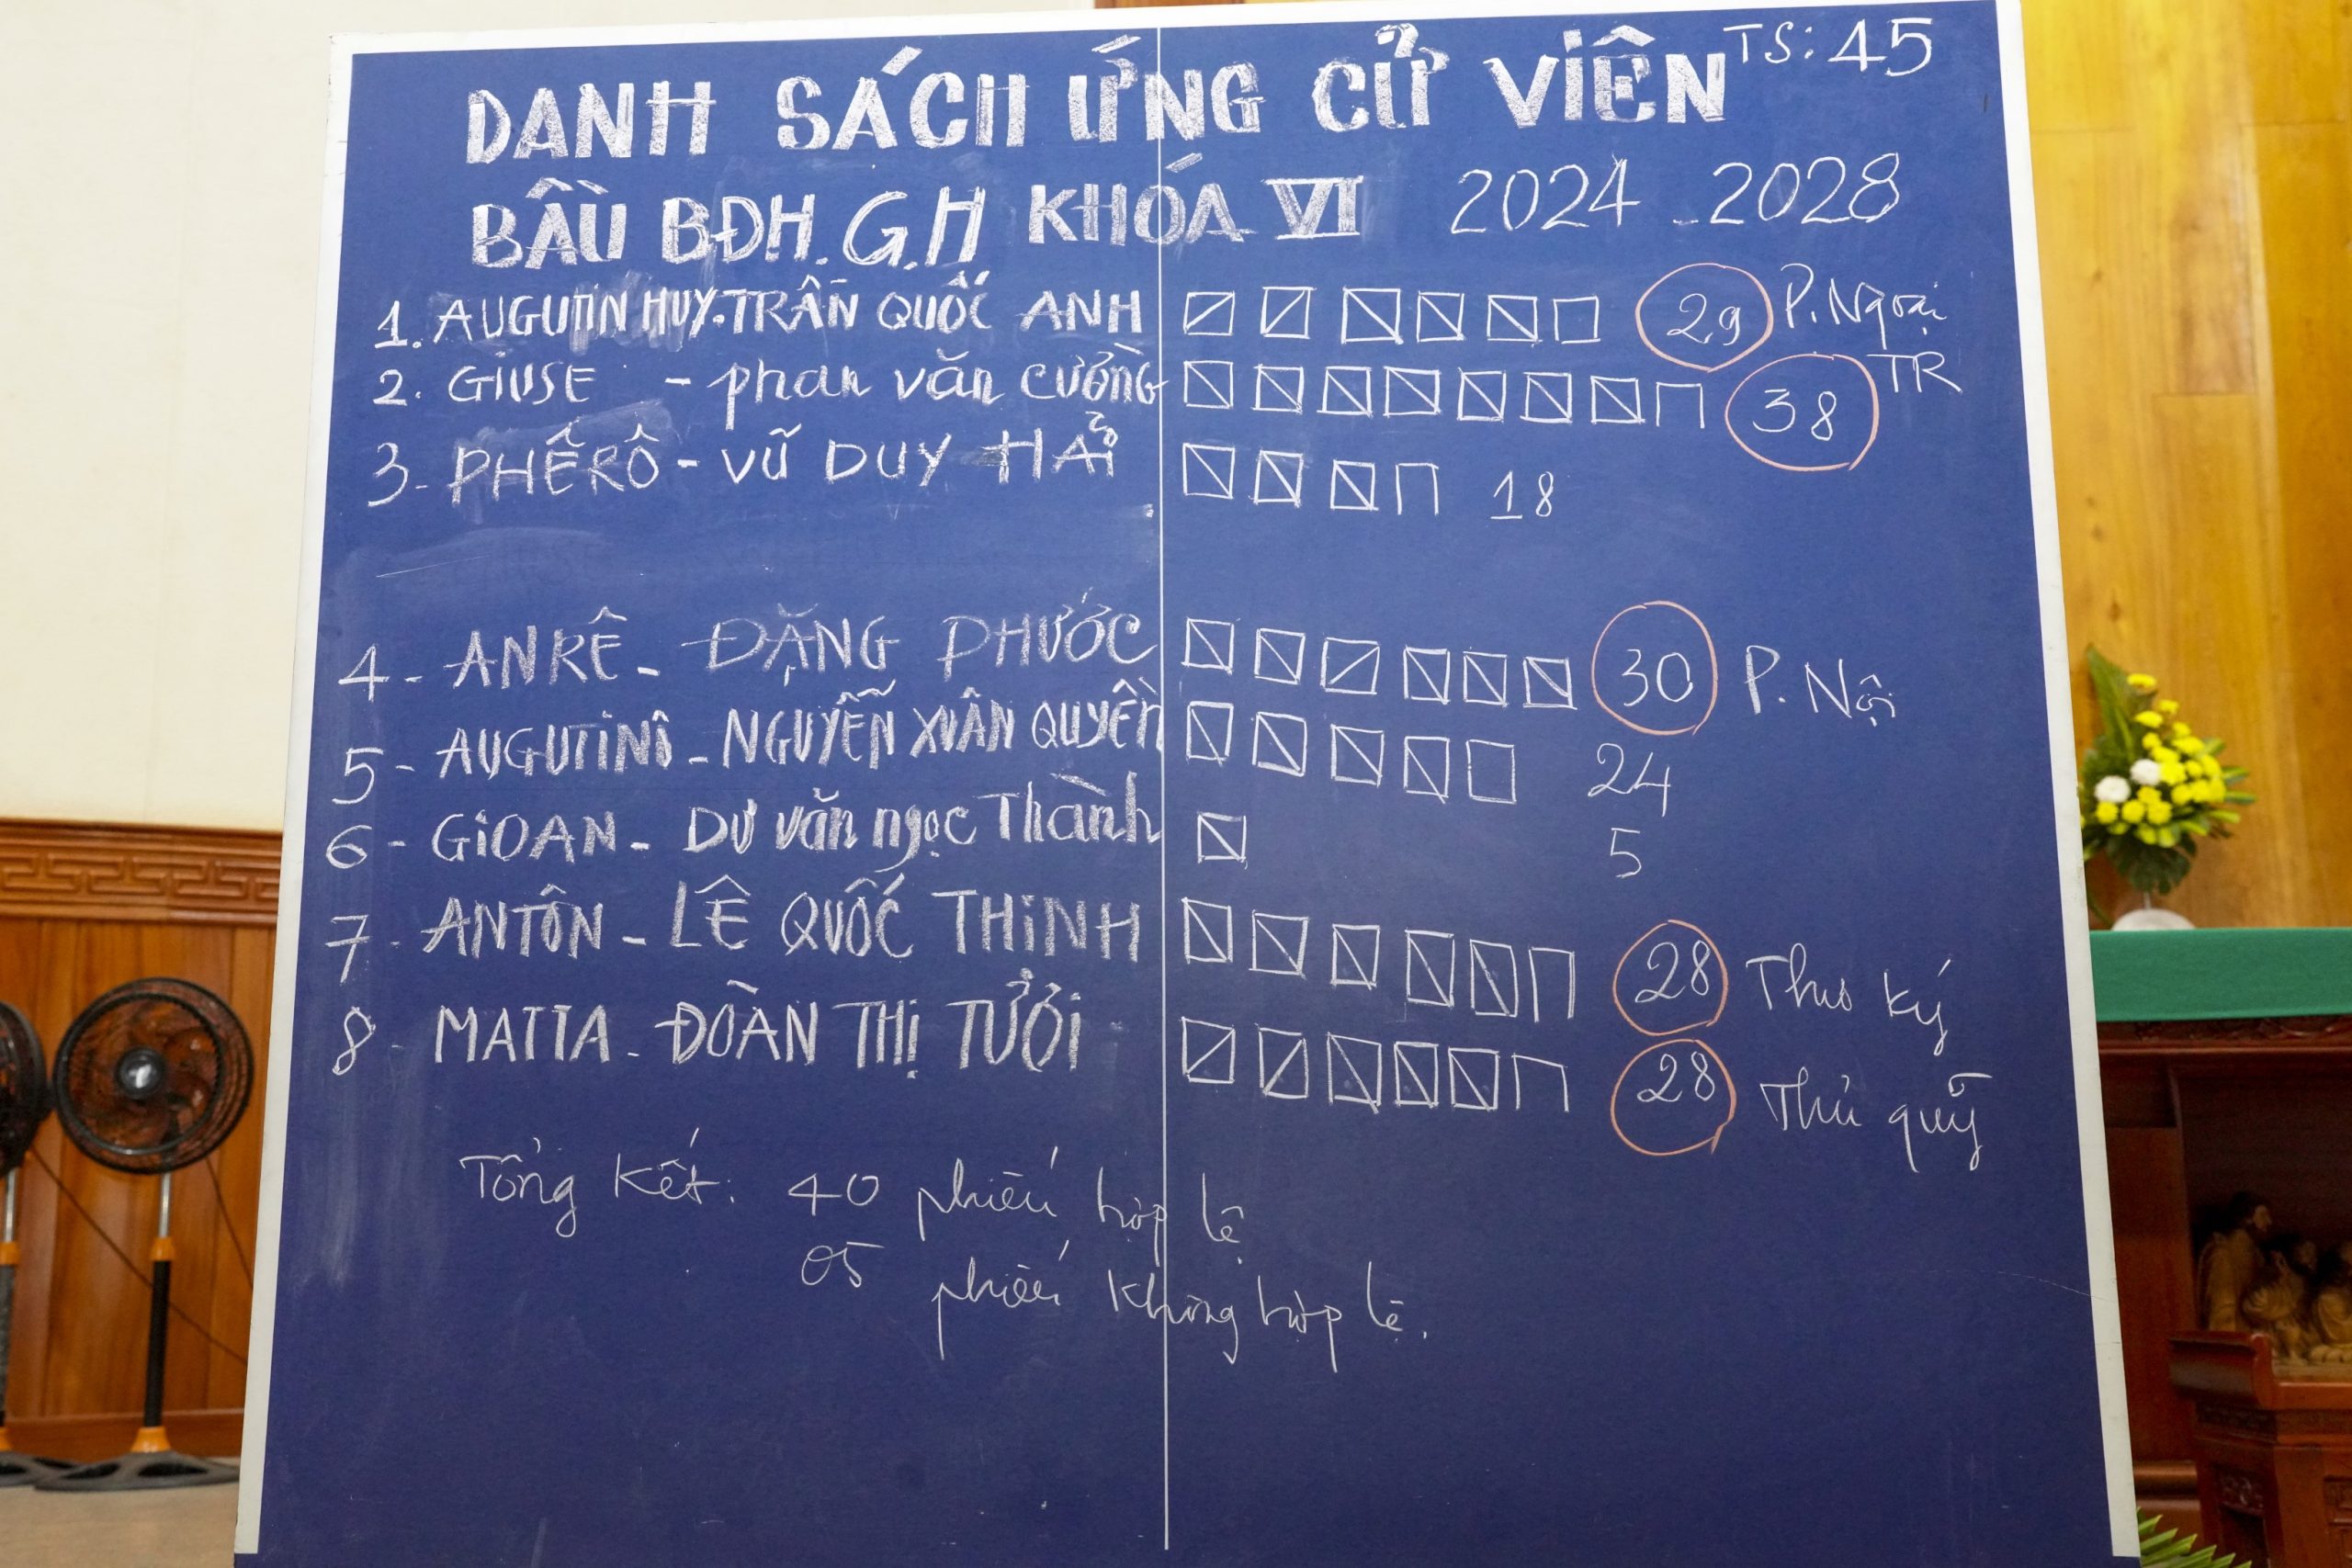 TS: 45
DANH SÁCH ỨNG CỬ VIÊN
BẦU BĐH.G.H KHÓA VI 2024 - 2028
1. AUGUTIN HUY.TRẦN QUỐC ANH 29 P. Ngoại
2. GIUSE - phan văn cường 38 TR
3 - PHÊRÔ - VŨ DUY HẢI 18
4 - ANRÊ - ĐẶNG PHƯỚC 30 P. Nội
5 - AUGUTINÔ - NGUYỄN XUÂN QUYỀN 24
6 - GIOAN - Dư văn ngọc Thành 5
7 - ANTÔN - LÊ QUỐC THINH 28 Thư ký
8 - MATTA - ĐOÀN THỊ TƯỞI 28 Thủ quỹ
Tổng kết: 40 phiếu hợp lệ
05 phiếu không hợp lệ.